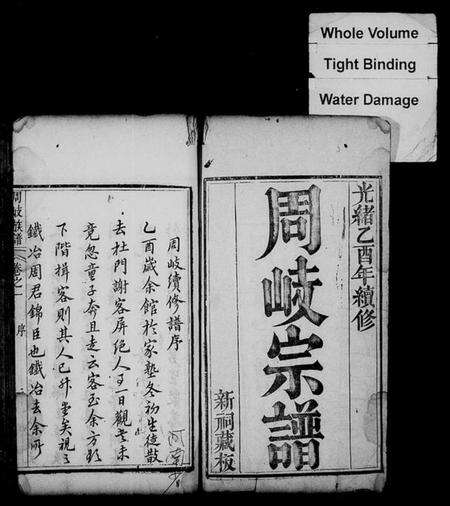 Whole Volume
Tight Binding
Water Damage
光緒乙酉年續修
周岐宗譜
新祠藏板
周岐續修譜序
乙酉歲余館於家塾冬初生徒散
去杜門謝客屏絕人一日觀書未
竟忽童子奔且走云客至余方
下階揖客則其人已升堂矣視之
鐵冶周君錦臣也鐵冶去余所
周岐族譜
卷之一
序
河南省